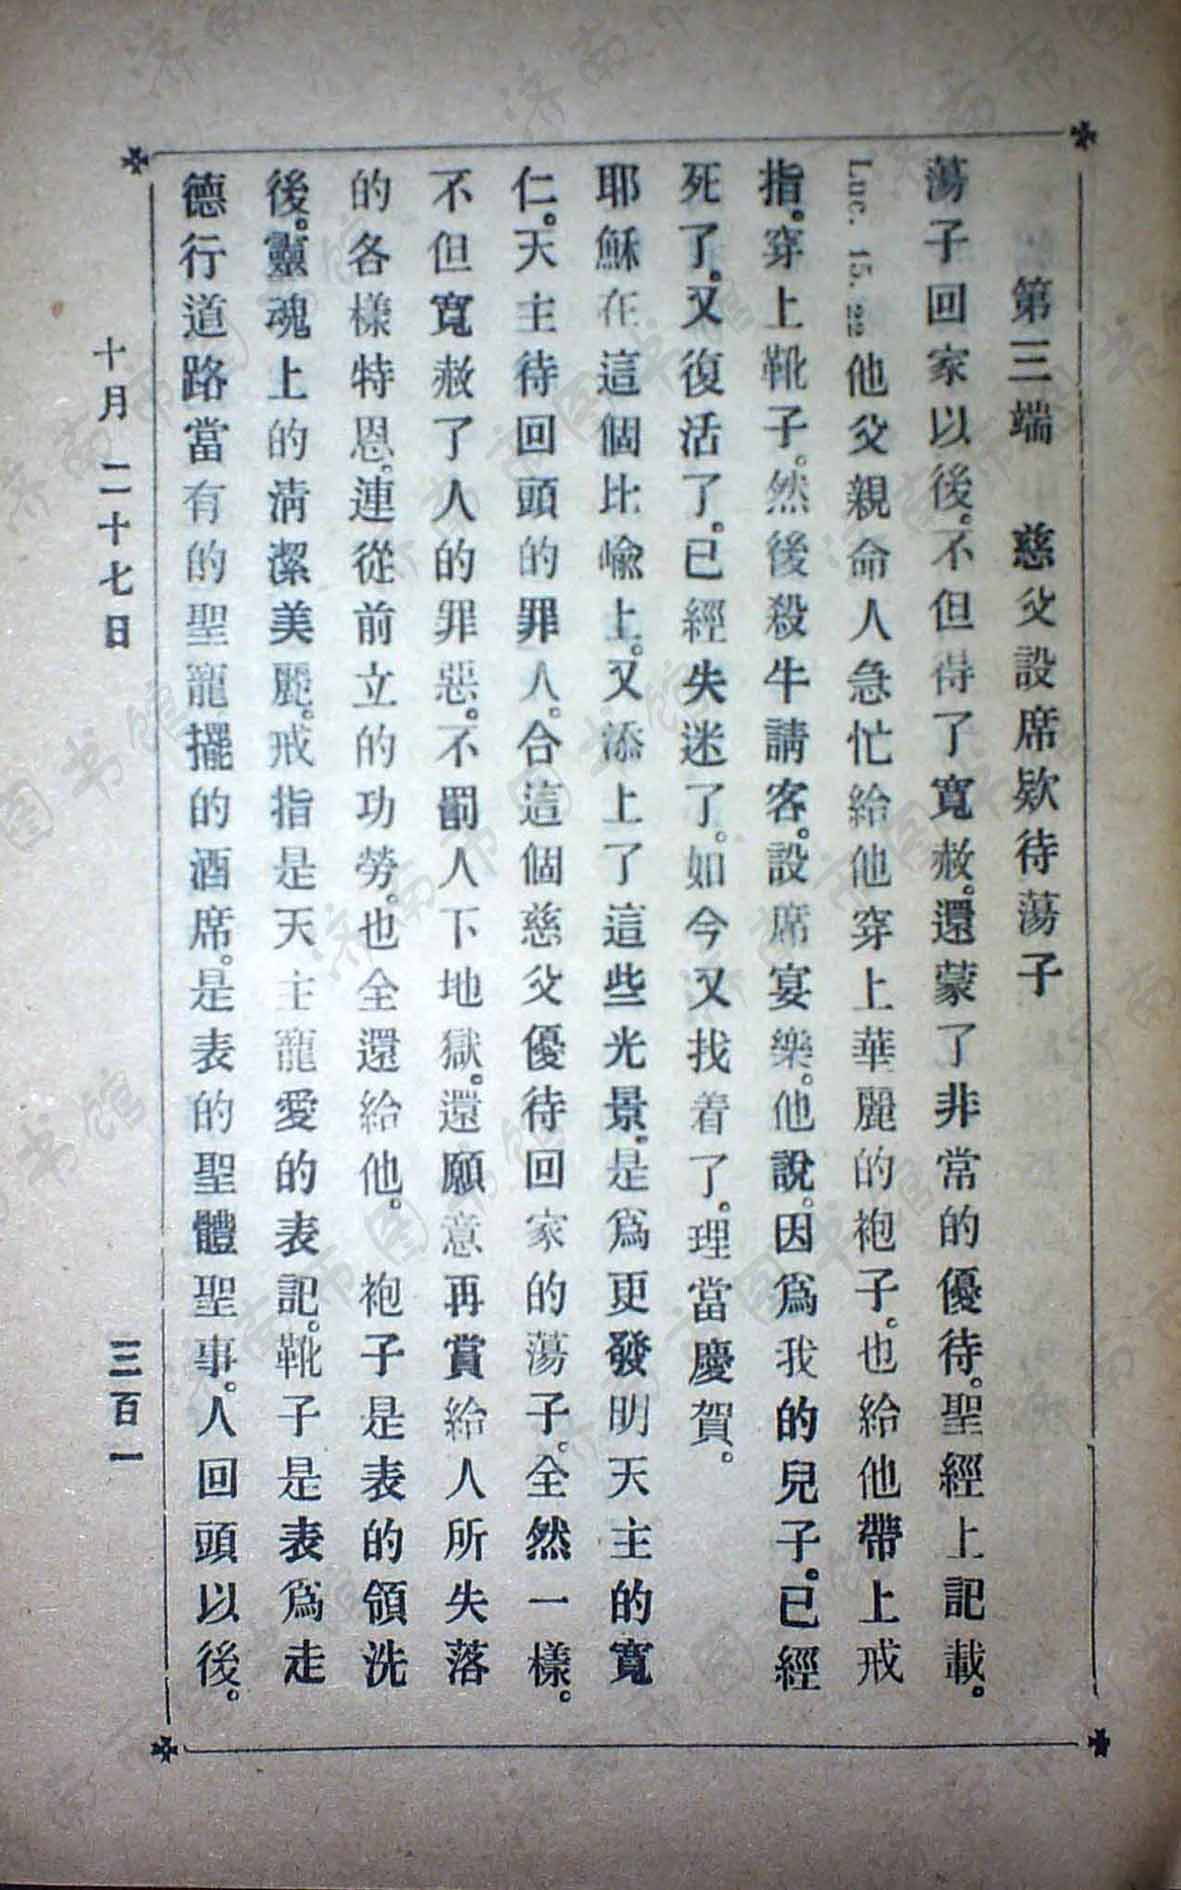 第三端　慈父設席欵待蕩子
蕩子回家以後。不但得了寬赦。還蒙了非常的優待。聖經上記載。
Luc. 15. 22 他父親命人急忙給他穿上華麗的袍子。也給他帶上戒
指。穿上靴子。然後殺牛請客。設席宴樂。他說。因爲我的兒子。已經
死了。又復活了。已經失迷了。如今又找着了。理當慶賀。
耶穌在這個比喻上。又添上了這些光景。是爲更發明天主的寬
仁。天主待回頭的罪人。合這個慈父優待回家的蕩子。全然一樣。
不但寬赦了人的罪惡。不罰人下地獄。還願意再賞給人所失落
的各樣特恩。連從前立的功勞。也全還給他。　袍子是表的領洗
後。靈魂上的清潔美麗。戒指是天主寵愛的表記。靴子是表爲走
德行道路當有的聖寵擺的酒席。是表的聖體聖事。人回頭以後。
十月　二十七日
三百一
济南市图书馆